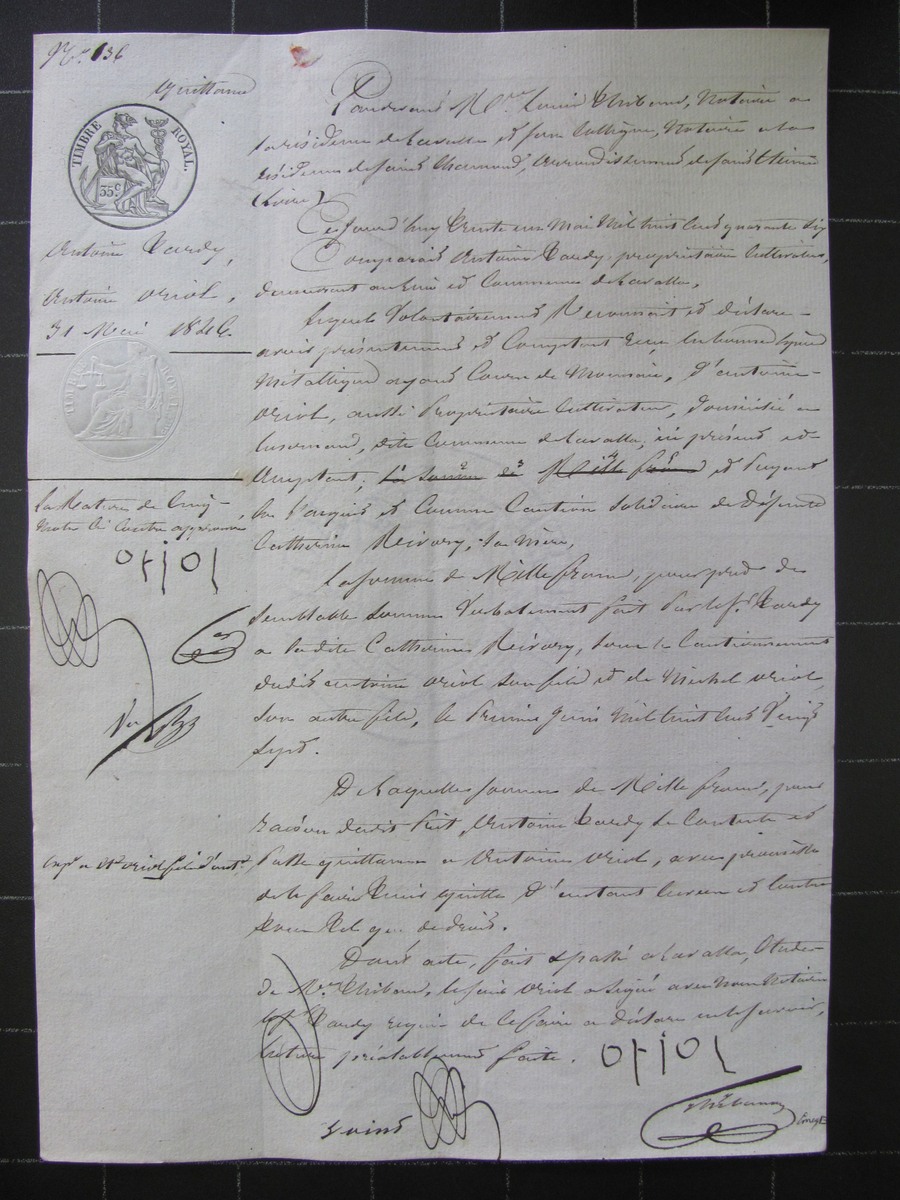 N.° 136
quittance
TIMBRE ROYAL.
35 c.
Antoine Tardy,
Antoine oriol,
31 Mai 1846.
La Rature de Cinq
Mots Ci contre approuvée
oriol
Pardevant M.tre Louis Thibaud, Notaire a
la résidence de Lavalla et son Collègue, Notaire a la
résidence de saint Chamond, arrondissement de saint Etienne
(Loire)
Cejourd'huy trente un Mai Mil huit cent quarante six
Comparait Antoine Tardy, propriétaire Cultivateur,
demeurant au et Commune de Lavalla,
Lequel Volontairement Reconnait et déclare
avoir présentement et Comptant reçu, en bonnes espèces
Métallique ayant Cours de Monnaie, d'antoine
oriol, aussi Propriétaire Cultivateur, domicilié a
dite Commune de Lavalla, ici présent et
acceptant, la somme de Mille francs et Payant
Comme Caution solidaire de Défunte
Catherine Reivory, sa Mère,
La somme de Mille francs, pour prêt de
semblable somme Verbalement fait Par led. sr. Tardy
a ladite Catherine Reivory, sous le Cautionnement
dudit antoine oriol son fils et de Michel oriol,
son autre fils, le Premier Juin Mil huit cent Vingt
sept.
De laquelle somme de Mille francs, pour
raison dudit Prêt, Antoine Tardy se Contente et
Passe quittance a Antoine oriol, avec promesse
de le faire tenir quitte d'autant envers et Contre
tous de droit.
Dont acte, fait et passé a Lavalla, Etude
de M.e Thibaud, led. sieur oriol a signé avec Nous Notaires
led. sr. Tardy requis de le faire a déclaré ne le savoir,
Lecture préalablement faite.
oriol
Thibaud